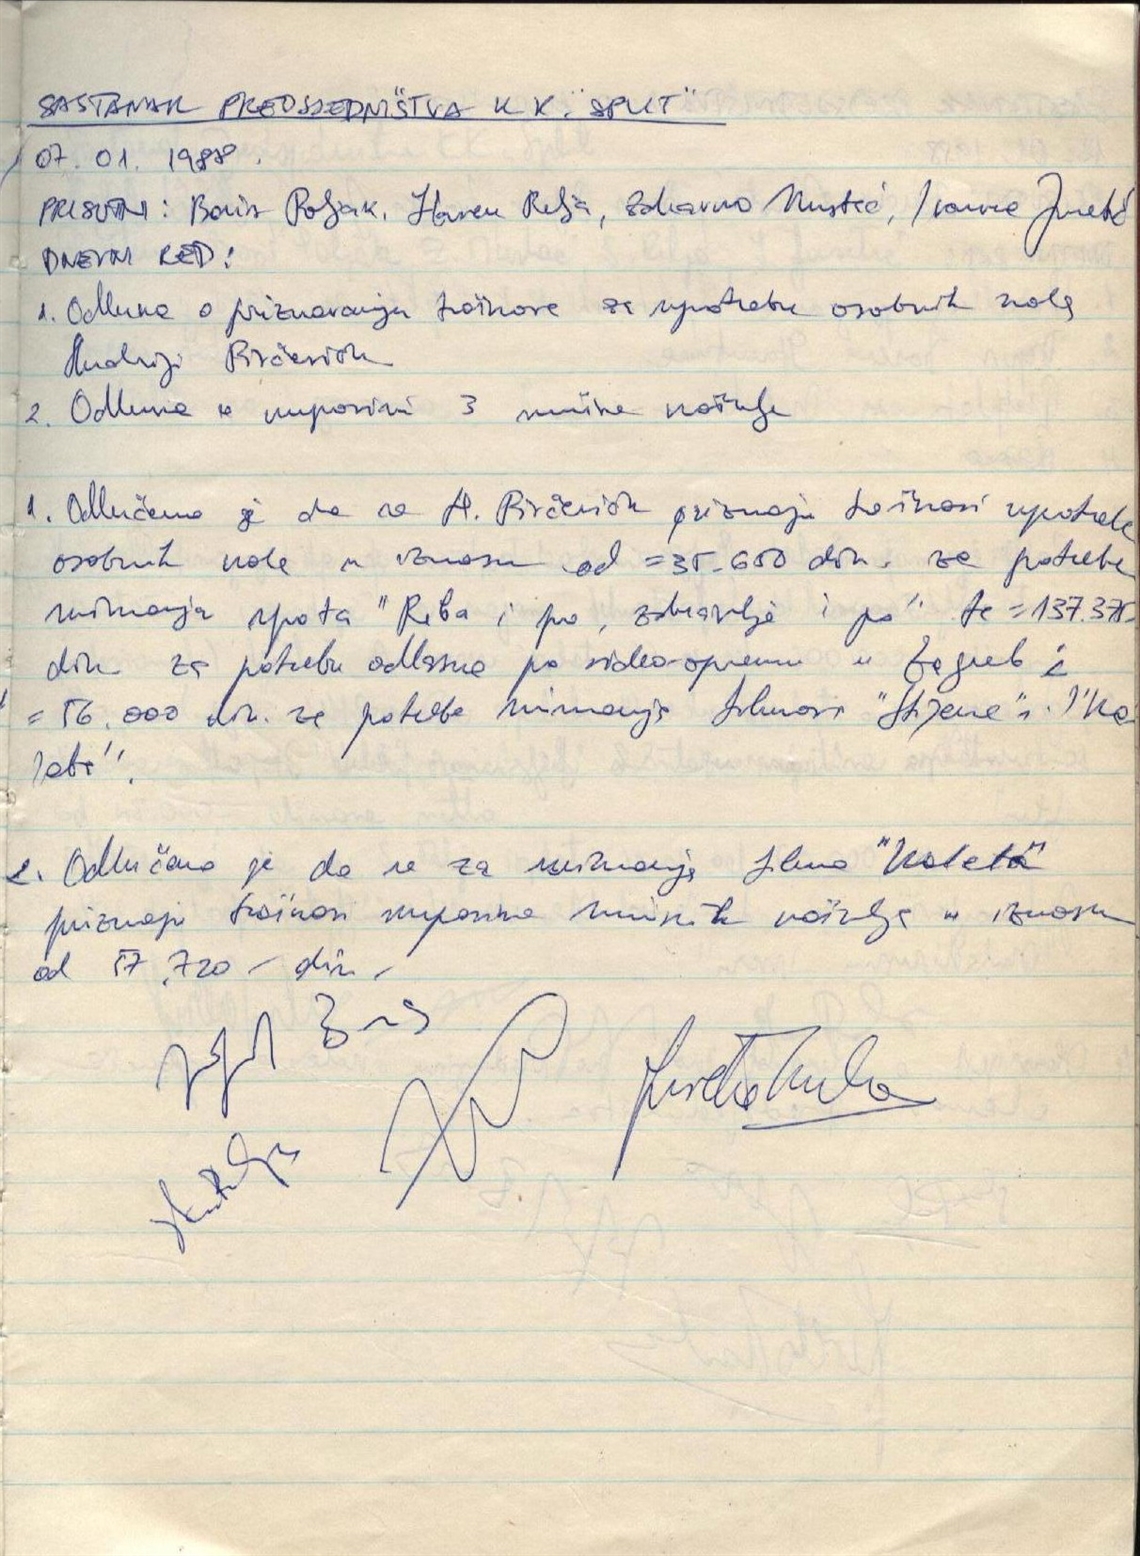 SASTANAK PREDSJEDNIŠTVA K K. "SPLIT"
07. 01. 1988.
PRISUTNI: Boris Poljak, Hrvoje Relja, Zdravko Mustać, Ivanka Juretić
DNEVNI RED:
1. Odluka o priznavanju troškova za upotrebu osobnih kola
Andriji Pivčeviću
2. Odluka u kupovini 3 muške košulje
1. Odlučeno je da se A. Pivčeviću priznaju troškovi upotrebe
osobnih kola u iznosu od =35.650 din. za potrebe
snimanja spota "Riba i po, zdravlje i po" te =137.375
din za potrebu odlaska po video-opremu u Zagreb i
=56.000 din. za potrebe snimanja filmova "Stijene" i "Ka
leta".
2. Odlučeno je da se za snimanje filma "Kaleta"
priznaju troškovi kupovine muških košulja u iznosu
od 57.720 - din -